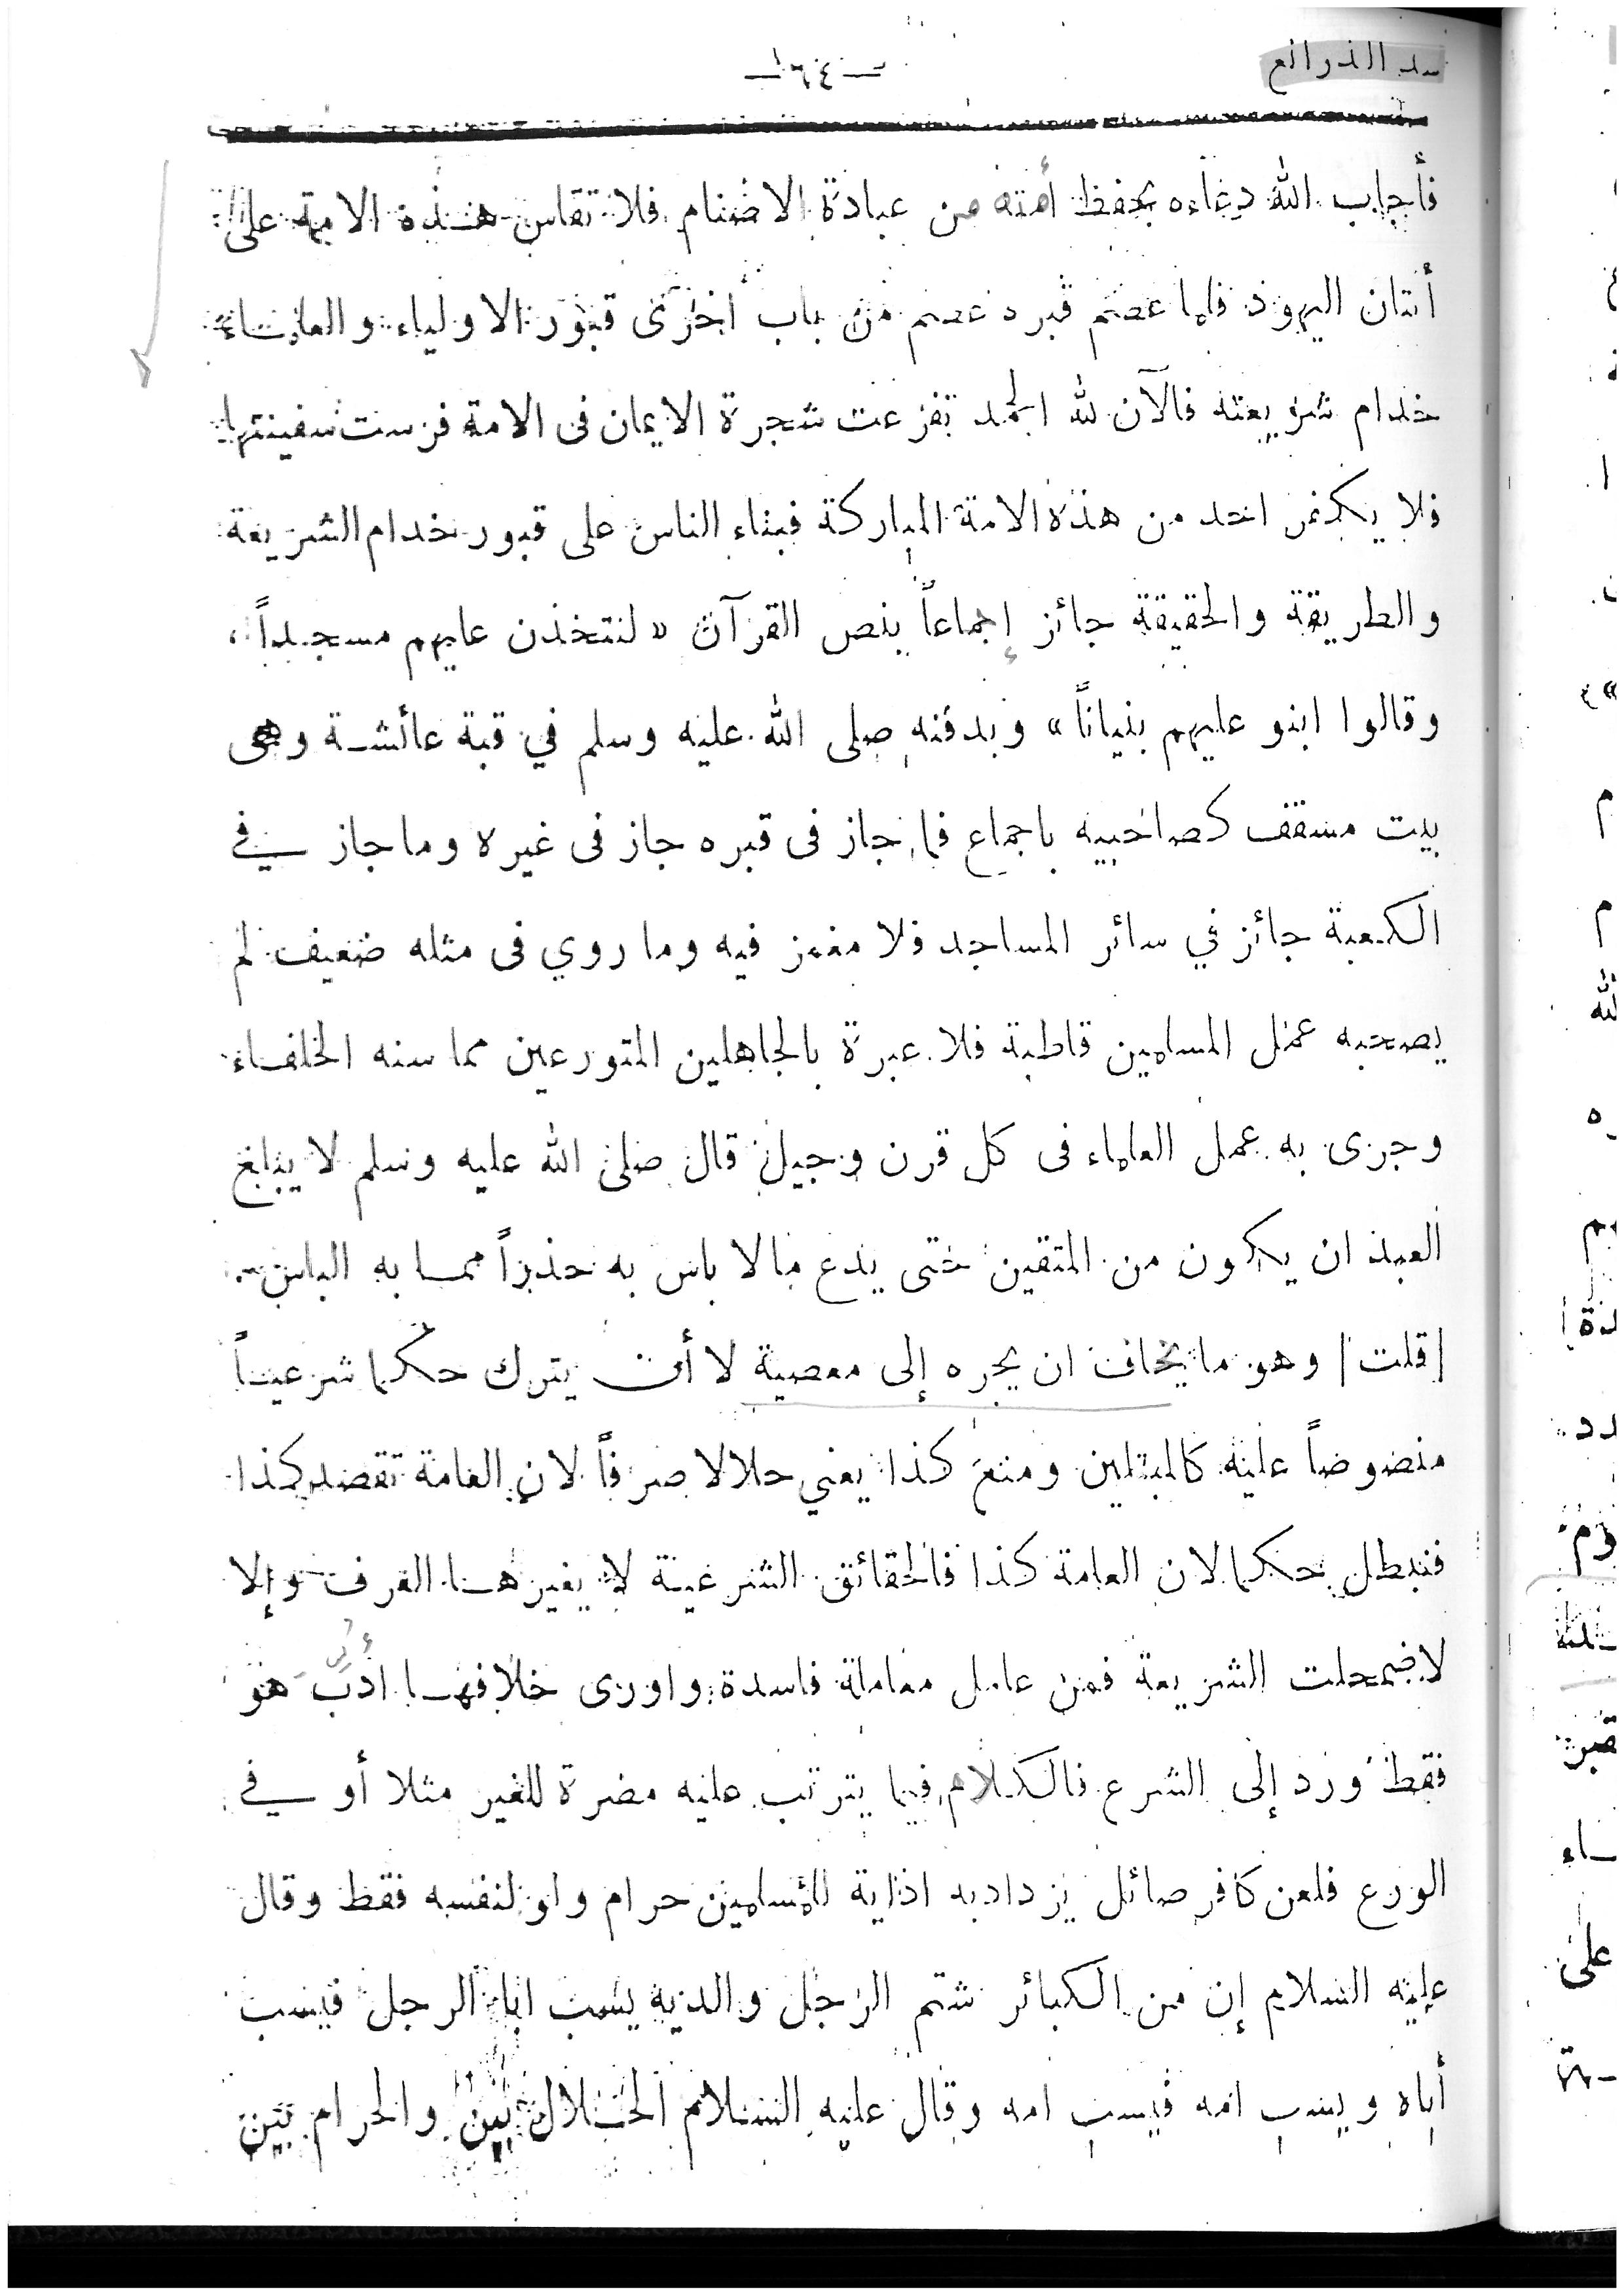 سد الذرائع
— ١٦٤ —
فأجاب الله دعاءه بحفظ أمته من عبادة الاصنام فلا تقاس هذه الامة على
اليهود فلما عصم قبره عصم من باب أخرى قبور الاولياء والعلماء
خدام شريعته فالآن لله الحمد تفرعت شجرة الايمان فى الامة فرست سفينتها
فلا يكفر احد من هذه الامة المباركة فبناء الناس على قبور خدام الشريعة
والطريقة والحقيقة جائز إجماعاً بنص القرآن « لنتخذن عليهم مسجداً ،
وقالوا ابنو عليهم بنياناً » وبدفنه صلى الله عليه وسلم في قبة عائشة وهى
بيت مسقف كصاحبيه باجماع فما جاز فى قبره جاز فى غيره وما جاز في
الكعبة جائز في سائر المساجد فلا مغمز فيه وما روي فى مثله ضعيف لم
يصحبه عمل المسلمين قاطبة فلا عبرة بالجاهلين المتورعين مما سنه الخلفاء
وجرى به عمل العلماء فى كل قرن وجيل قال صلى الله عليه وسلم لا يبلغ
العبد ان يكون من المتقين حتى يدع مالا باس به حذراً مما به الباس
(قلت) وهو ما يخاف ان يجره إلى معصية لا أن يترك حكما شرعياً
منصوصاً عليه كالمبتلين ومنع كذا يعني حلالا صرفاً لان العامة تقصد كذا
فنبطل حكما لان العامة كذا فالحقائق الشرعية لا يغيرها العرف وإلا
لاضمحلت الشريعة فمن عامل معاملة فاسدة واورى خلافها ادب هو
فقط ورد إلى الشرع فالكلام فيما يترتب عليه مضرة للغير مثلا أو في
الورع فلعن كافر صائل يزداد به اذاية للمسلمين حرام ولو لنفسه فقط وقال
عليه السلام إن من الكبائر شتم الرجل والديه يسب ابا الرجل فيسب
أباه ويسب امه فيسب امه وقال عليه السلام الحلال بين والحرام بين